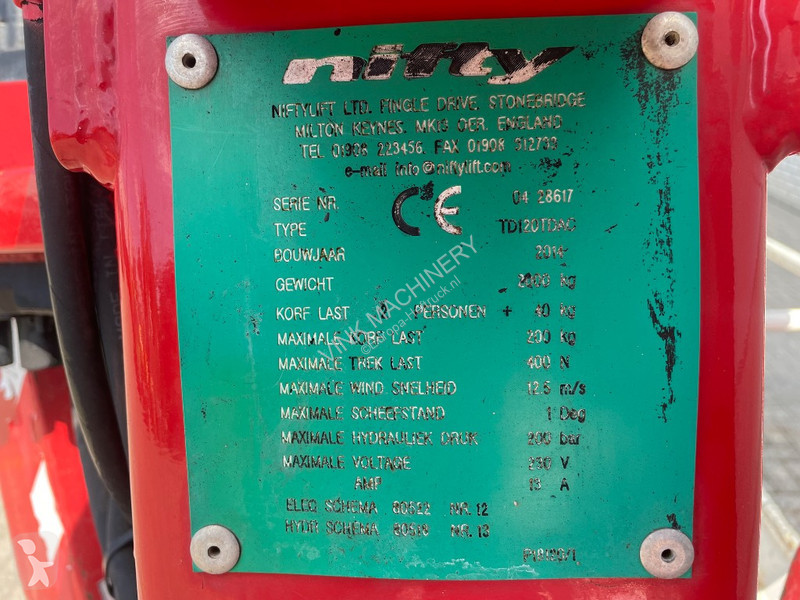 nifty
NIFTYLIFT LTD. FINGLE DRIVE. STONEBRIDGE
MILTON KEYNES. MK13 0ER. ENGLAND
TEL 01908 223456. FAX 01908 312733
e-mail info@niftylift.com
CE
SERIE NR. 04 28617
TYPE
BOUWJAAR 2014
GEWICHT kg
KORF LAST PERSONEN + 40 kg
MAXIMALE KORF LAST 200 kg
MAXIMALE TREK LAST 400 N
MAXIMALE WIND SNELHEID 12.5 m/s
MAXIMALE SCHEEFSTAND 1 Deg
MAXIMALE HYDRAULIEK DRUK 200 bar
MAXIMALE VOLTAGE 230 V
AMP 13 A
ELEC SCHEMA NR. 12
HYDR SCHEMA NR. 13
VINK MACHINERY